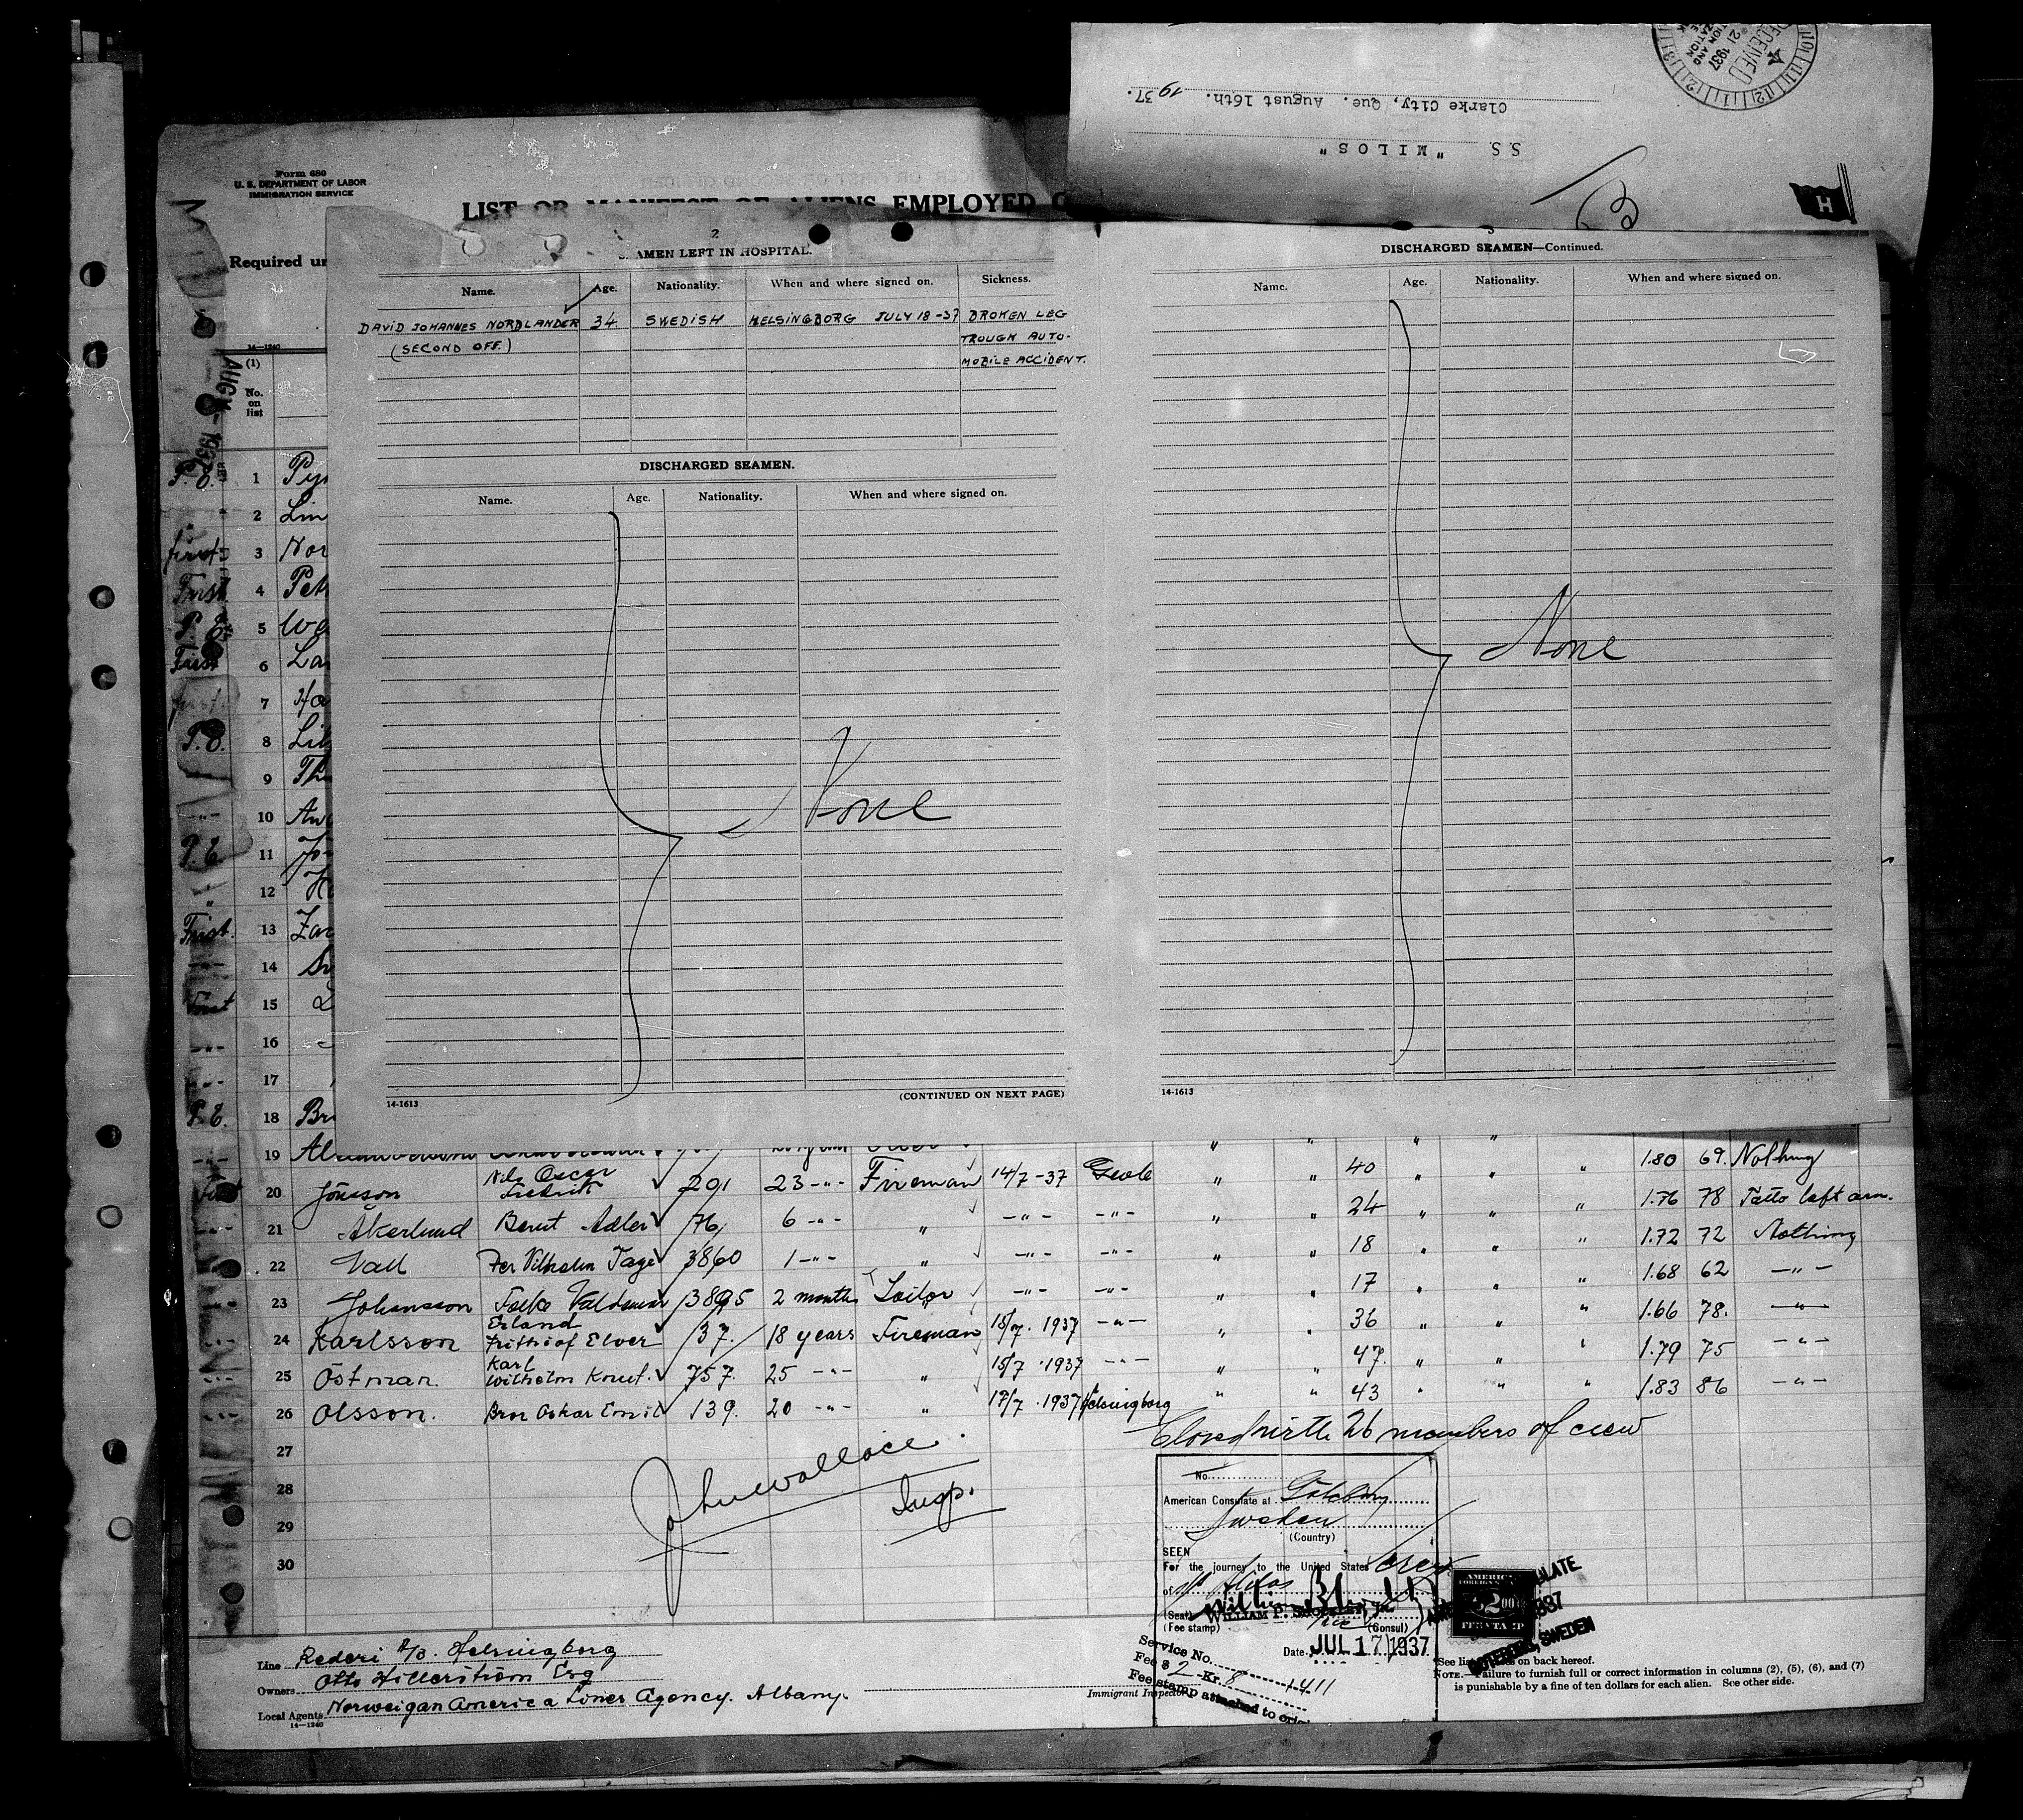 RECEIVED
21 1937
Clarke City, Que. August 16th. 1937.
S.S. "MILOS"
B
H
Form 680
U. S. DEPARTMENT OF LABOR
IMMIGRATION SERVICE
LIST OR MANIFEST OF ALIENS EMPLOYED O
Required un
14—1240
(1)
No.
on
list
AUG 1937
2
SEAMEN LEFT IN HOSPITAL.
Name. Age. Nationality. When and where signed on. Sickness.
DAVID JOHANNES NORDLANDER 34 SWEDISH HELSINGBORG JULY 18-37 BROKEN LEG
(SECOND OFF.) TROUGH AUTO-
MOBILE ACCIDENT.
DISCHARGED SEAMEN.
Name. Age. Nationality. When and where signed on.
None
14-1613 (CONTINUED ON NEXT PAGE)
3
DISCHARGED SEAMEN—Continued.
Name. Age. Nationality. When and where signed on.
None
14-1613
P.E. 1 Pyr
" 2 Lin
first 3 Nor
First 4 Pet
P.E. 5 Wa
First 6 Lar
first 7 Ha
P.E. 8 Lil
9 Th
-"- 10 An
P.E. 11 Jo
" 12 H
First. 13 Zac
14 Sv
First 15
16
17
P.E. 18 Br
19 Al " " " " " 1.80 69. Nothing
20 Jönsson Nils Oscar Fredrik 291 23 -"- Fireman 14/7-37 Gevle " " 40 " " " 1.76 78 Tatto left arm.
21 Åkerlund Bernt Adler 76, 6 -"- " -"- -"- " " 24 " " " 1.72 72 Nothing
22 Vall Per Vilhelm Tage 3860 1 -"- " -"- -"- " " 18 " " " 1.68 62 -"-
23 Johansson Folke Valdemar 3895 2 months Loitor -"- -"- " " 17 " " " 1.66 78. -"-
24 Karlsson Erland Frithiof Elver 37. 18 years Fireman 15/7. 1937 -"- " " 36 " " " 1.79 75 -"-
25 Östman. Karl Wilhelm Knut. 757. 25 -"- " 15/7.1937 -"- " " 47. " " " 1.83 86 -"-
26 Olsson. Bror Oskar Emil 139. 20 -"- " 17/7.1937 Helsingborg " " 43 " " "
27
28
29
30
Closed with 26 members of crew
John Wallace.
Insp.
No.
American Consulate at Göteborg
Sweden
(Country)
SEEN
For the journey to the United States crew
of SS Milos
(Seal) WILLIAM P.
(Fee stamp) Vice (Consul)
Date JUL 17 1937
Service No. 1411
Fee $ 2 - Kr. 8
Fee stamp attached to orig
AMERICAN
FOREIGN
$2.00
GOTEBORG, SWEDEN
Line Rederi A/B. Helsingborg
Owners Otto Hillerström Esq
Local Agents Norweigan America Lines Agency. Albany.
14—1240
Immigrant Inspector.
See list on back hereof.
NOTE.—Failure to furnish full or correct information in columns (2), (5), (6), and (7)
is punishable by a fine of ten dollars for each alien. See other side.